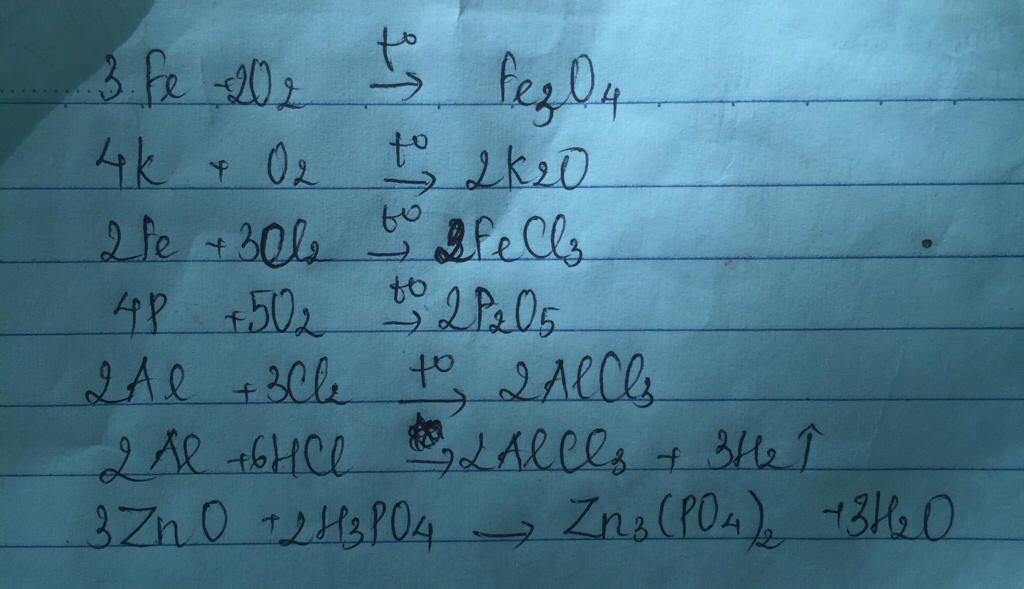 3Fe +2O2 t° → Fe3O4
4K + O2 t° → 2K2O
2Fe +3Cl2 t° → 2FeCl3
4P +5O2 t° → 2P2O5
2Al +3Cl2 t° → 2AlCl3
2Al +6HCl → 2AlCl3 + 3H2↑
3ZnO +2H3PO4 → Zn3(PO4)2 +3H2O